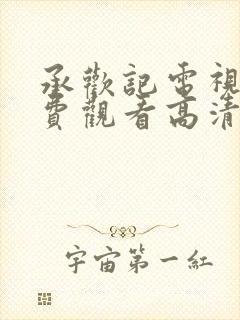 承歡記電視
費觀看高清
宇宙第一紅